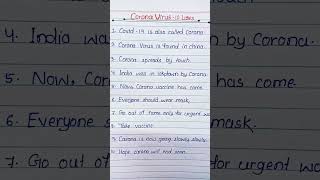 Corona Virus-10 Lines
1. Covid-19 is also called Corona.
2. Corona Virus is found in china.
3. Corona spreads by touch.
4. India was in lokdown by Corona.
5. Now, Corona vaccine has come.
6. Everyone should wear mask.
7. Go out of home only for urgent work.
8. Take vaccine.
9. Corona is now going slowly slowly.
10. Hope, corona will end soon.
4. India was
by Corona.
5. Now, Coro
has come.
6. Everyone s
mask.
7. Go out of
urgent wo